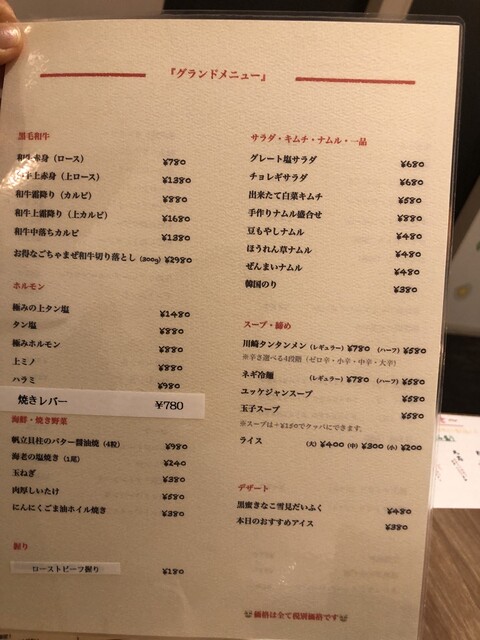 『グランドメニュー』
黒毛和牛
和牛赤身（ロース） ¥780
和牛上赤身（上ロース） ¥1380
和牛霜降り（カルビ） ¥880
和牛上霜降り（上カルビ） ¥1680
和牛中落ちカルビ ¥1380
お得なごちゃまぜ和牛切り落とし（300g） ¥2980
ホルモン
極みの上タン塩 ¥1480
タン塩 ¥880
極みホルモン ¥880
上ミノ ¥880
ハラミ ¥980
焼きレバー ¥780
海鮮・焼き野菜
帆立貝柱のバター醤油焼（4粒） ¥980
海老の塩焼き（1尾） ¥240
玉ねぎ ¥380
肉厚しいたけ ¥580
にんにくごま油ホイル焼き ¥380
握り
ローストビーフ握り ¥180
サラダ・キムチ・ナムル・一品
グレート塩サラダ ¥680
チョレギサラダ ¥680
出来たて白菜キムチ ¥580
手作りナムル盛合せ ¥880
豆もやしナムル ¥480
ほうれん草ナムル ¥480
ぜんまいナムル ¥480
韓国のり ¥380
スープ・締め
川崎タンタンメン（レギュラー）¥780 （ハーフ）¥580
※辛さ選べる4段階（ゼロ辛・小辛・中辛・大辛）
ネギ冷麺 （レギュラー）¥780 （ハーフ）¥580
ユッケジャンスープ ¥580
玉子スープ ¥580
※スープは＋¥150でクッパにできます。
ライス （大）¥400（中）¥300（小）¥200
デザート
黒蜜きなこ雪見だいふく ¥480
本日のおすすめアイス ¥380
価格は全て税別価格です